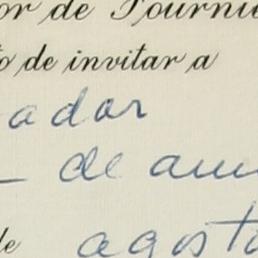 or de Fourni
to de invitar a
ador
– de
de agosto